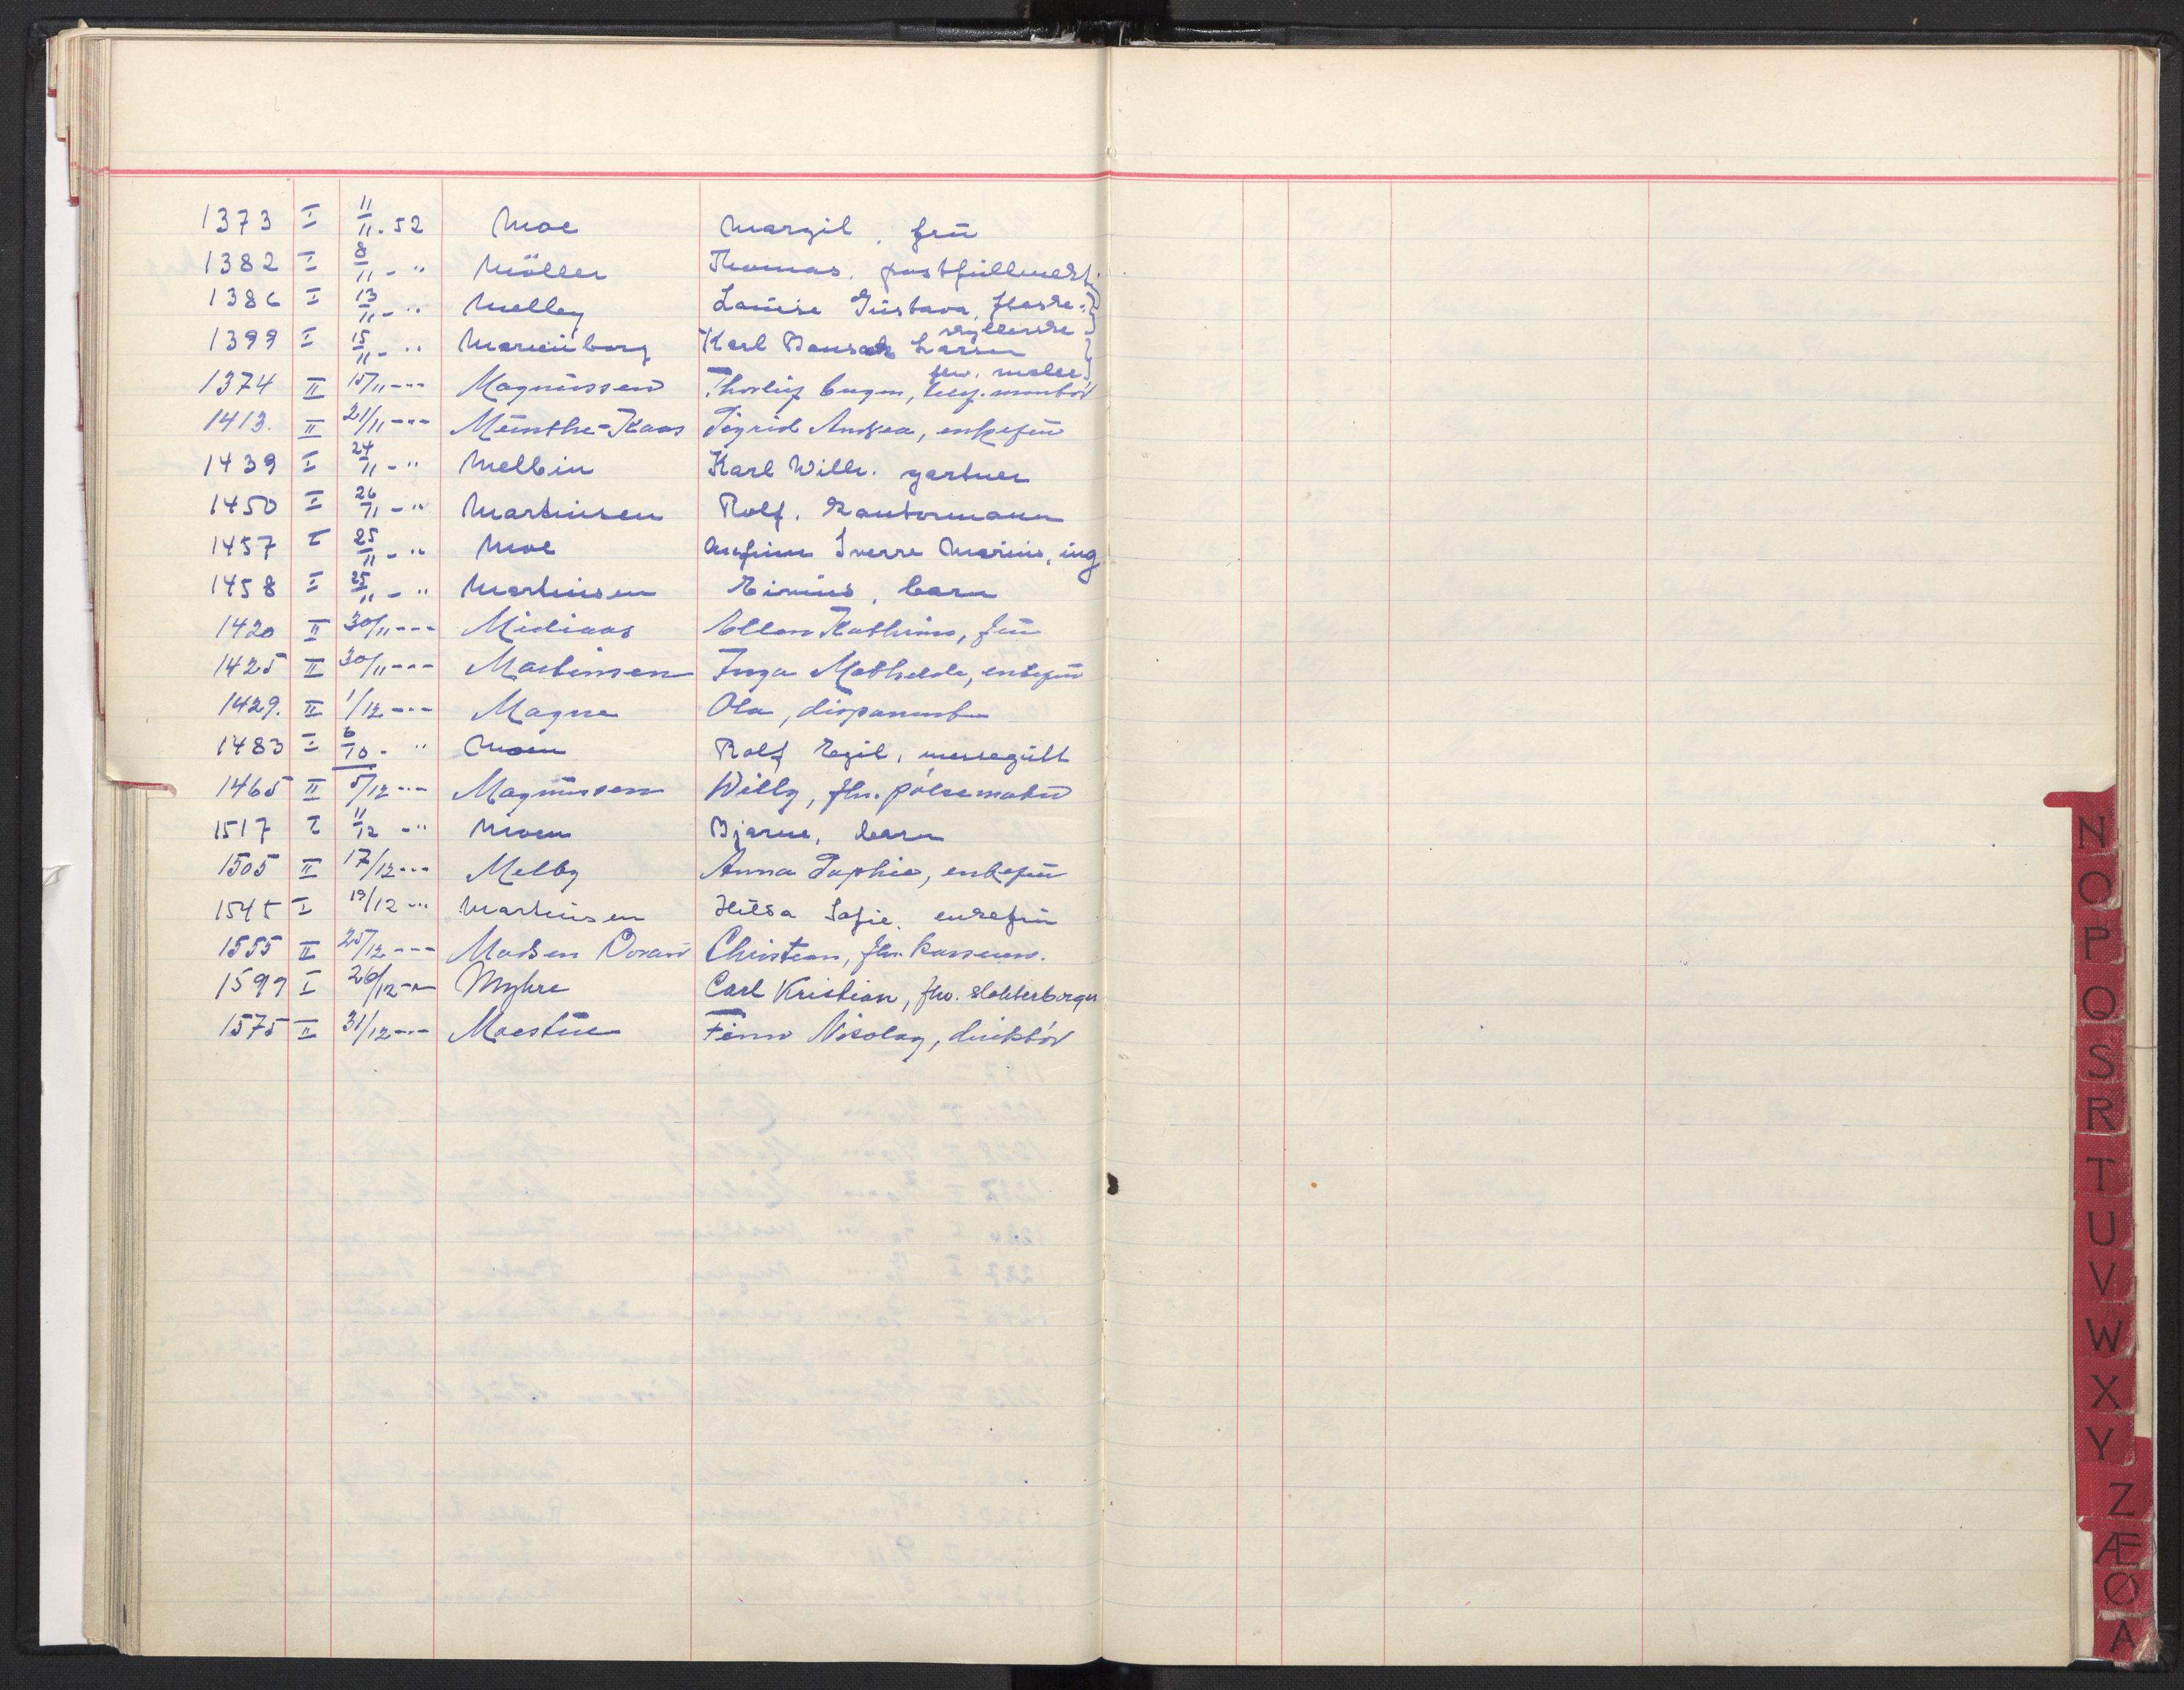 1373 I 11/11. 52 Moe Margit, frü
1382 I 8/11 - " Möller Thomas, postfüllmekt.
1386 I 13/11 - " Melley Louise Güstava, flaske-
skyllerske
1399 I 15/11 - " Marienborg Karl Larsen
fhv. maler
1374 II 15/11 - " - Magnüssen Thorleif Eugen, telef. montör
1413. II 21/11 - " - Münthe-Kaas Sigrid Andrea, enkefrü
1439 I 24/11 - " Melbin Karl Wilh. gartner
1450 I 26/11 - " Martinsen Rolf. Kontormann
1457 I 25/11 - " Moe Arnfinn Sverre Marius, ing
1458 I 25/11 - " Martinsen barn
1420 II 30/11 - " - Midiaas Ellen Kathrine, frü
1425 II 30/11 - " - Martinsen Inga Mathilde, enkefrü
1429. II 1/12 - " - Magne Ola, disponent
1483 I 6/10 - " Moen Rolf Egil, messegütt
1465 II 5/12 - " - Magnüssen Willy, fhv. pölsemaker
1517 I 11/12 - " Moen Bjarne, barn
1505 II 17/12 - " - Melby Anna Sophie, enkefrü
1545 I 19/12 - " Martinsen Hilda Sofie, enkefrü
1555 II 25/12 - " - Madsen Christian, fhv.
1599 I 26/12 - " - Myhre Carl Kristian, fhv. slakterborger
1575 II 31/12 - " - Moestüe Finn Nicolay, direktör
N
O
P
Q
S
R
T
U
V
W
X
Y
Z
Æ
Ø
A